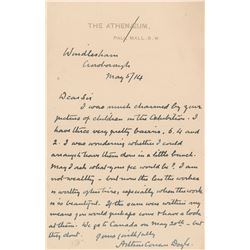 THE ATHENÆUM,
PALL MALL, S.W.
Windlesham
Crowborough
May 5/14
Dear Sir
I was much charmed by your
pictures of children in the Exhibition. I
have three very pretty bairns, 6. 4 and
2. I was wondering whether I could
arrange to have them done in a little bunch.
May I ask what your fee would be? I am
not wealthy - but none the less the worker
is worthy of his hire, especially when the work
is beautiful. If the sum were within my
means you would perhaps come & have a look
at them. We go to Canada on May 20th - but
they dont.
Yours faithfully
Arthur Conan Doyle.